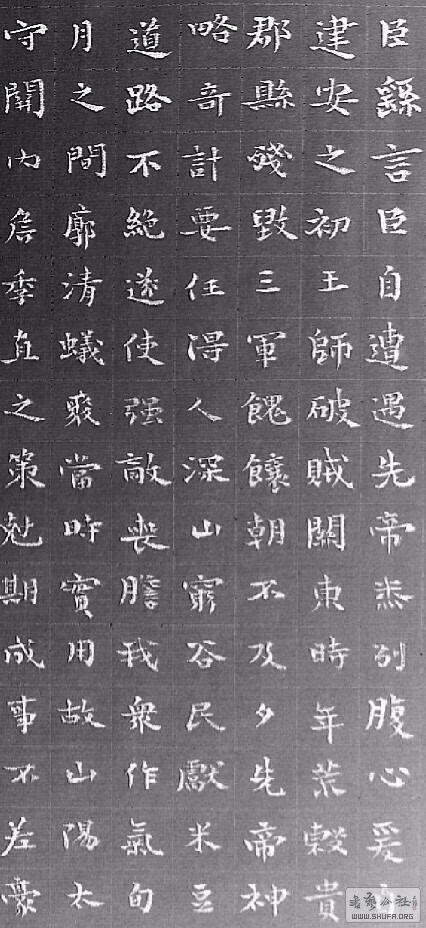 臣繇言臣自遭遇先帝忝列腹心爰
建安之初王師破賊關東時年荒穀貴
郡縣殘毀三軍餽饟朝不及夕先帝神
略奇計要任得人深山窮谷民獻米豆
道路不絕遂使强敵喪膽我衆作氣旬
月之間廓清蟻聚當時實用故山陽太
守關內侯季直之策剋期成事不差豪
书艺公社
WWW.SHUFA.ORG